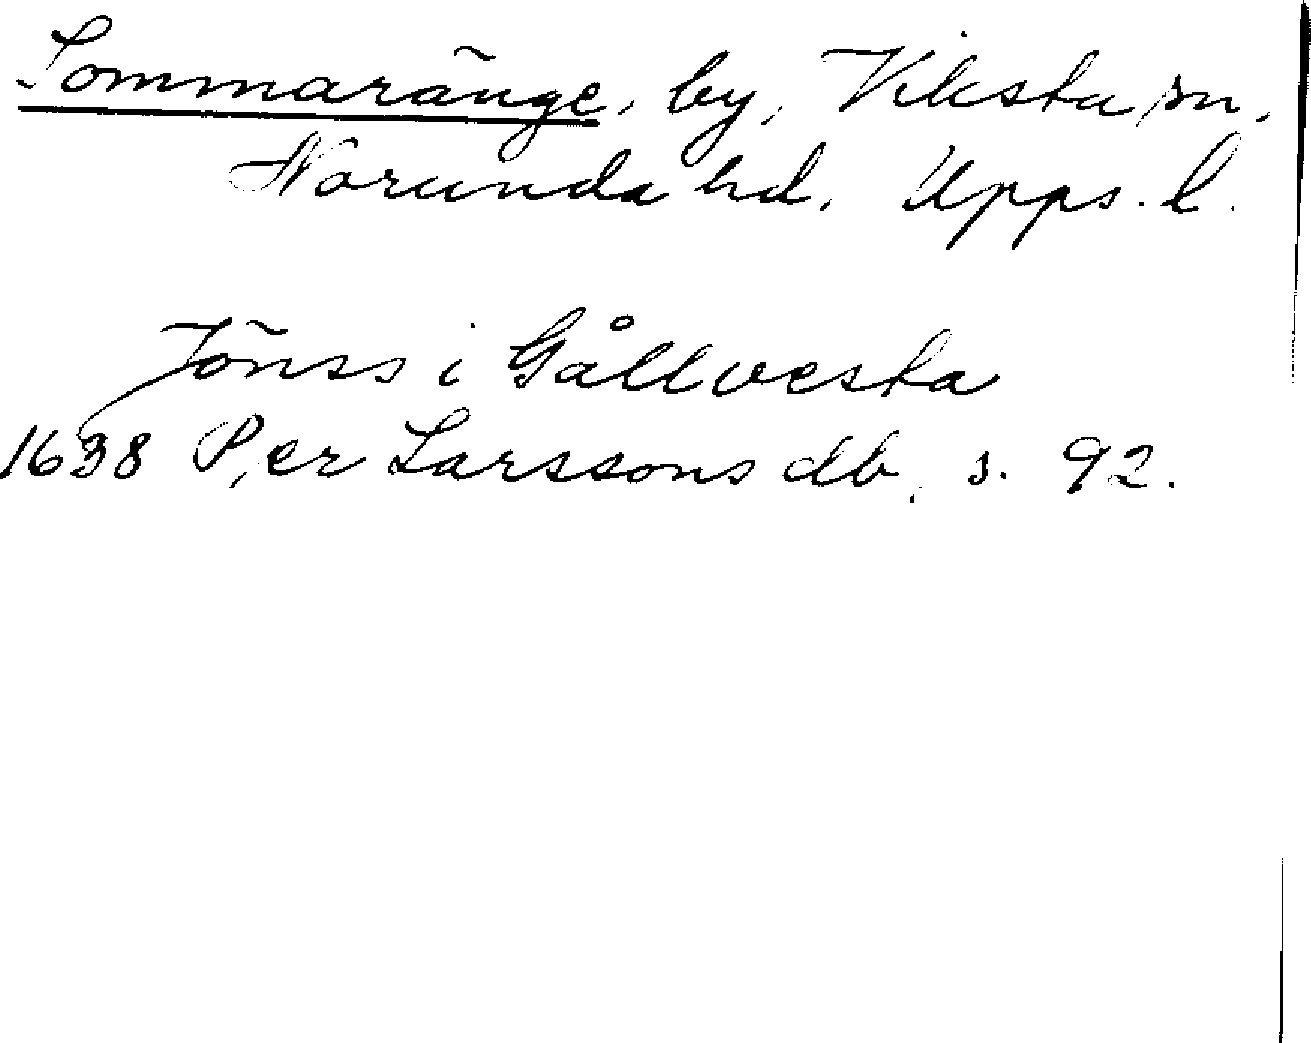 Sommaränge, by, Viksta sn,
Norunda hd, Upps. l.
Jönss i Gållvesta
1638 Per Larssons db, s. 92.